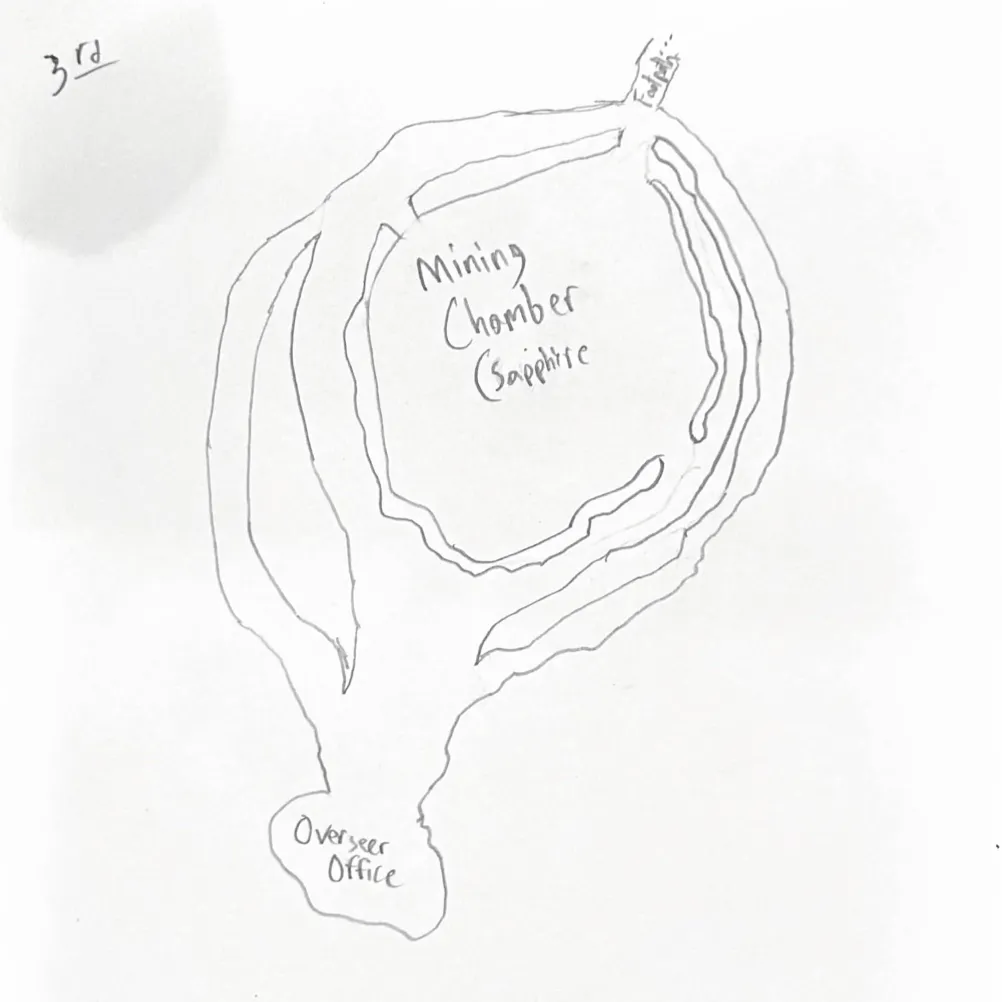 3rd
Footpath
Mining
Chamber
(Sapphire
Overseer
Office